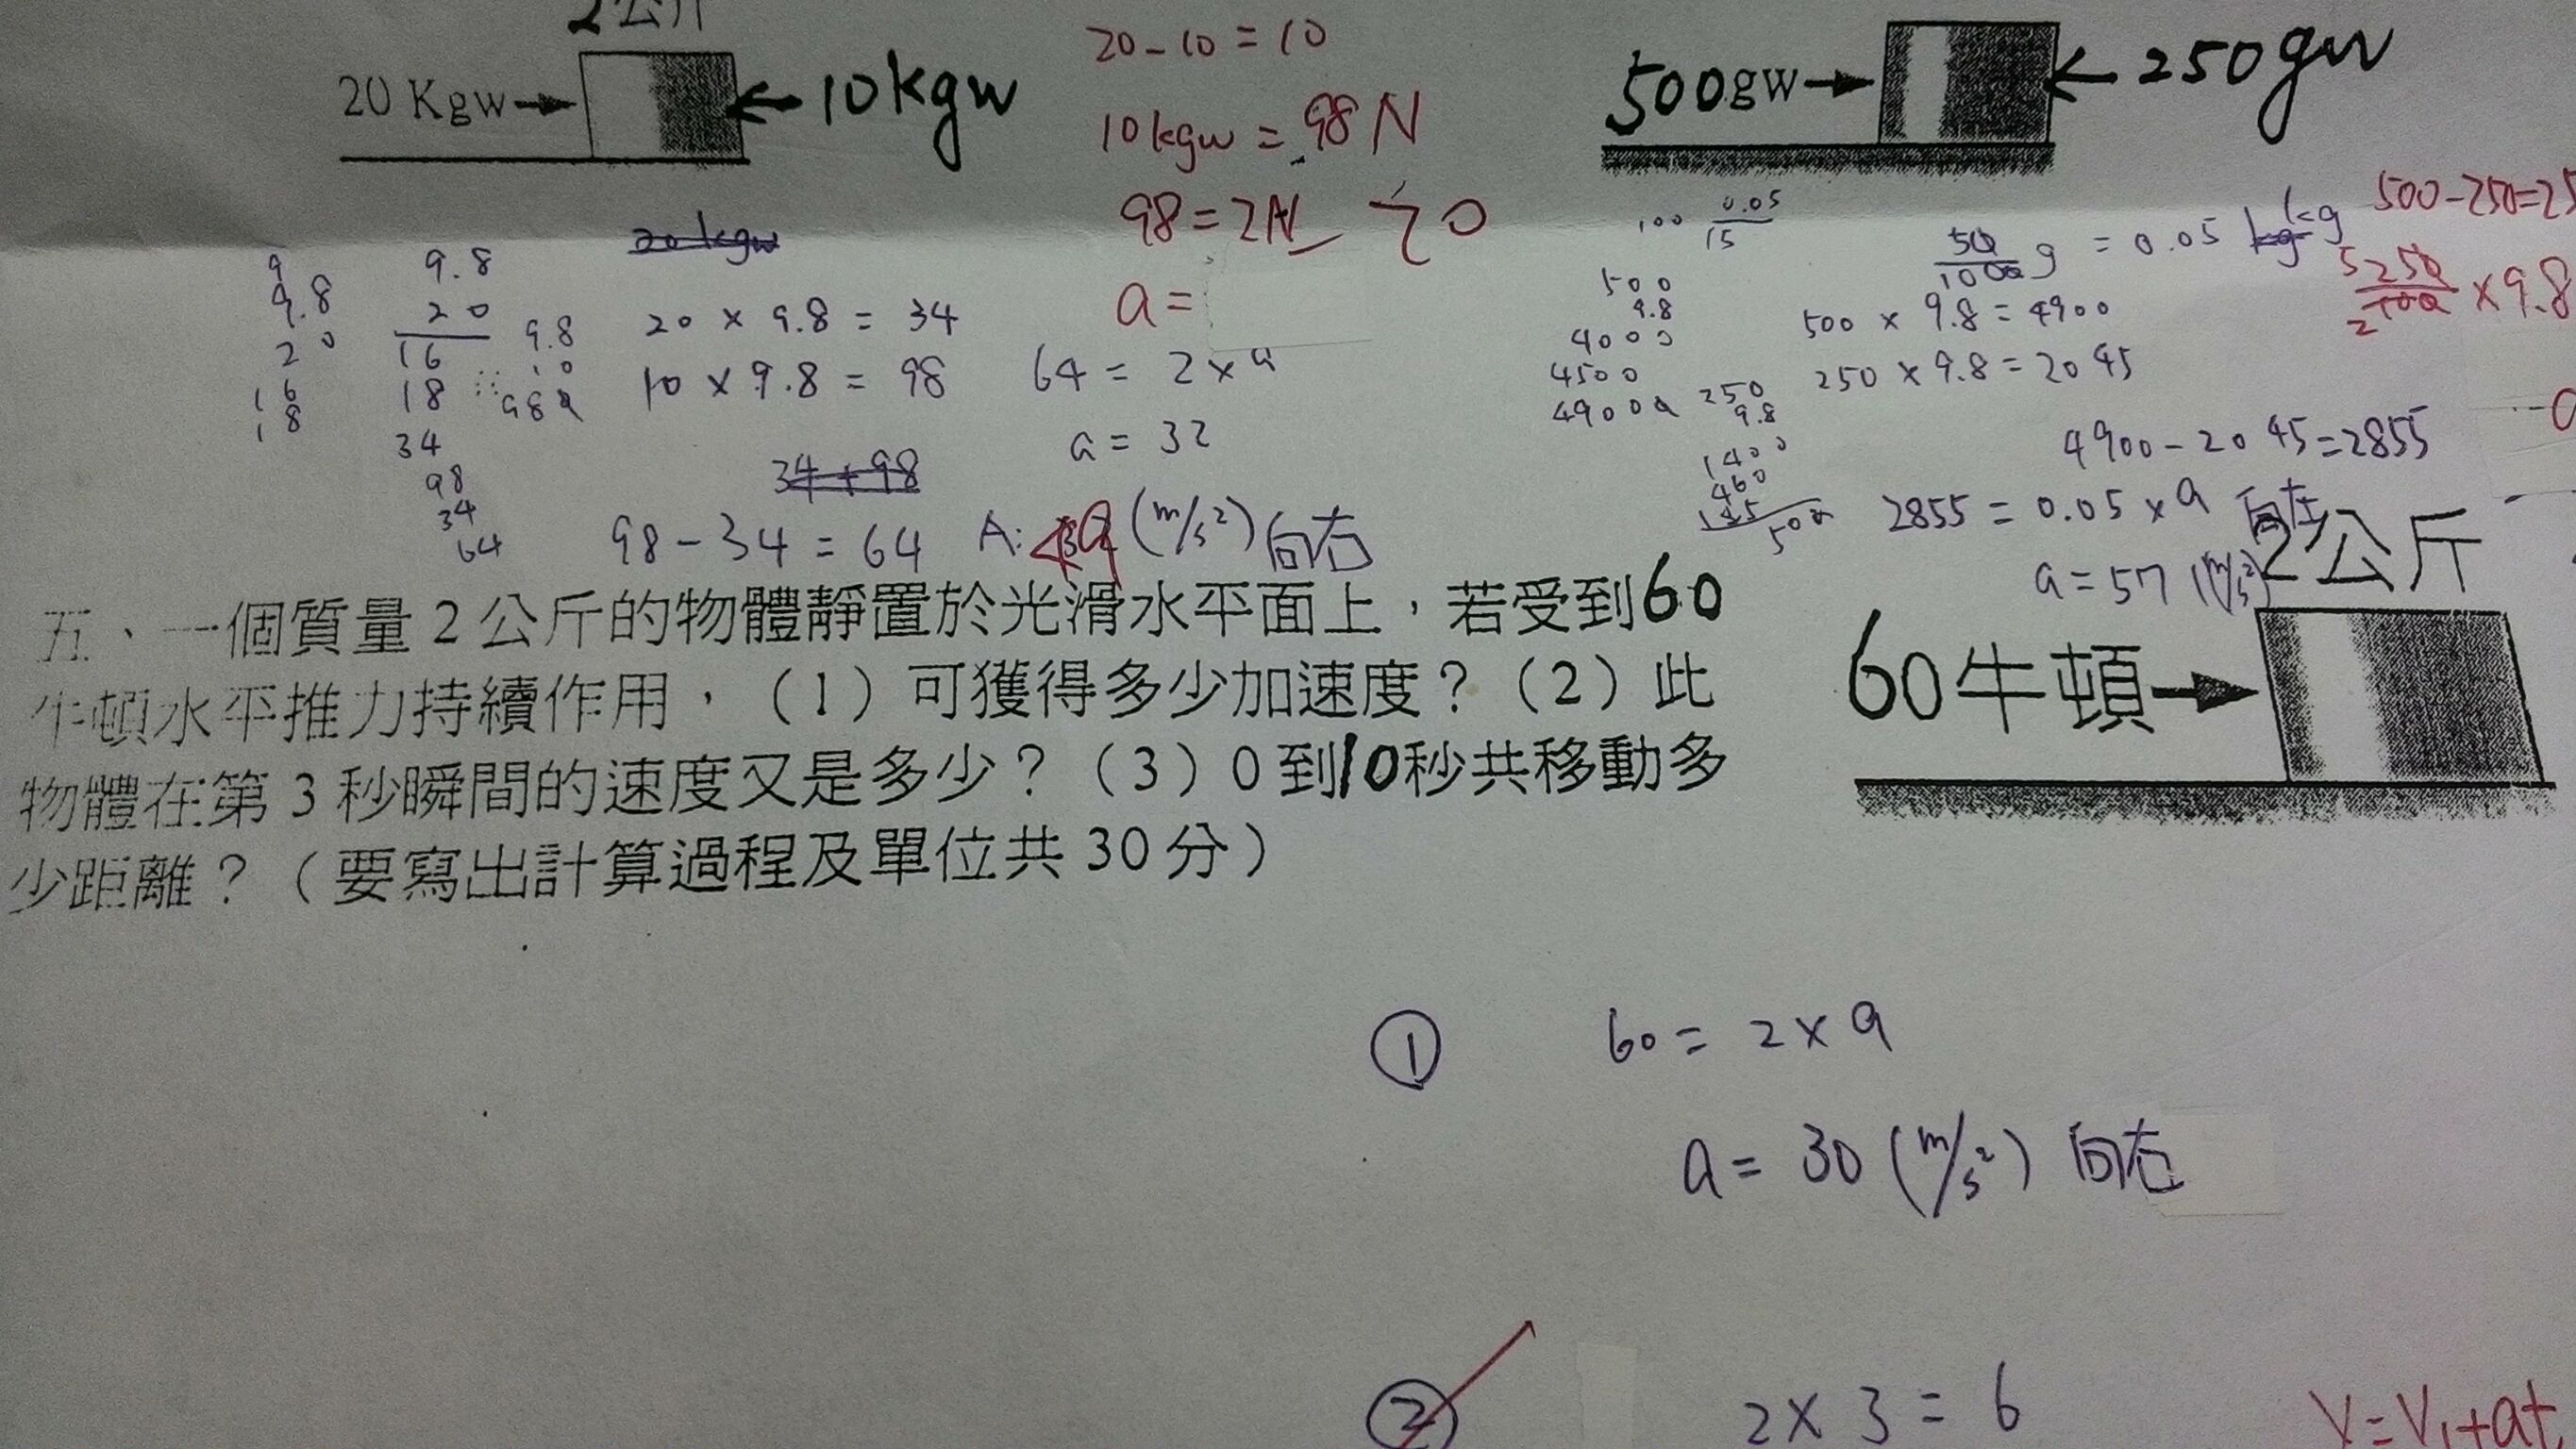 2公斤
20 Kgw→ ←10kgw
20-10=10
10kgw=98N
98=2A
a=
500gw→ ←250gw
500-250=25
9
9.8
20
16
18
9.8
20
16
18
34
98
34
64
9.8
10
980
20kgw
20 × 9.8 = 34
10 × 9.8 = 98
34+98
98-34=64
64 = 2×a
a = 32
A: (m/s²)向右
100 0.05
15
500
9.8
4000
4500
49000
250
9.8
50/1000 g = 0.05 kg
500 × 9.8=4900
250 × 9.8=2045
4900-2045=2855
2855=0.05×a 向右
a=57(m/s²)
250/100 ×9.8
五、一個質量2公斤的物體靜置於光滑水平面上，若受到60
牛頓水平推力持續作用，（1）可獲得多少加速度？（2）此
物體在第3秒瞬間的速度又是多少？（3）0到10秒共移動多
少距離？（要寫出計算過程及單位共30分）
2公斤
60牛頓→
① 60=2×a
a=30(m/s²)向右
② 2×3=6
V=V₁+at